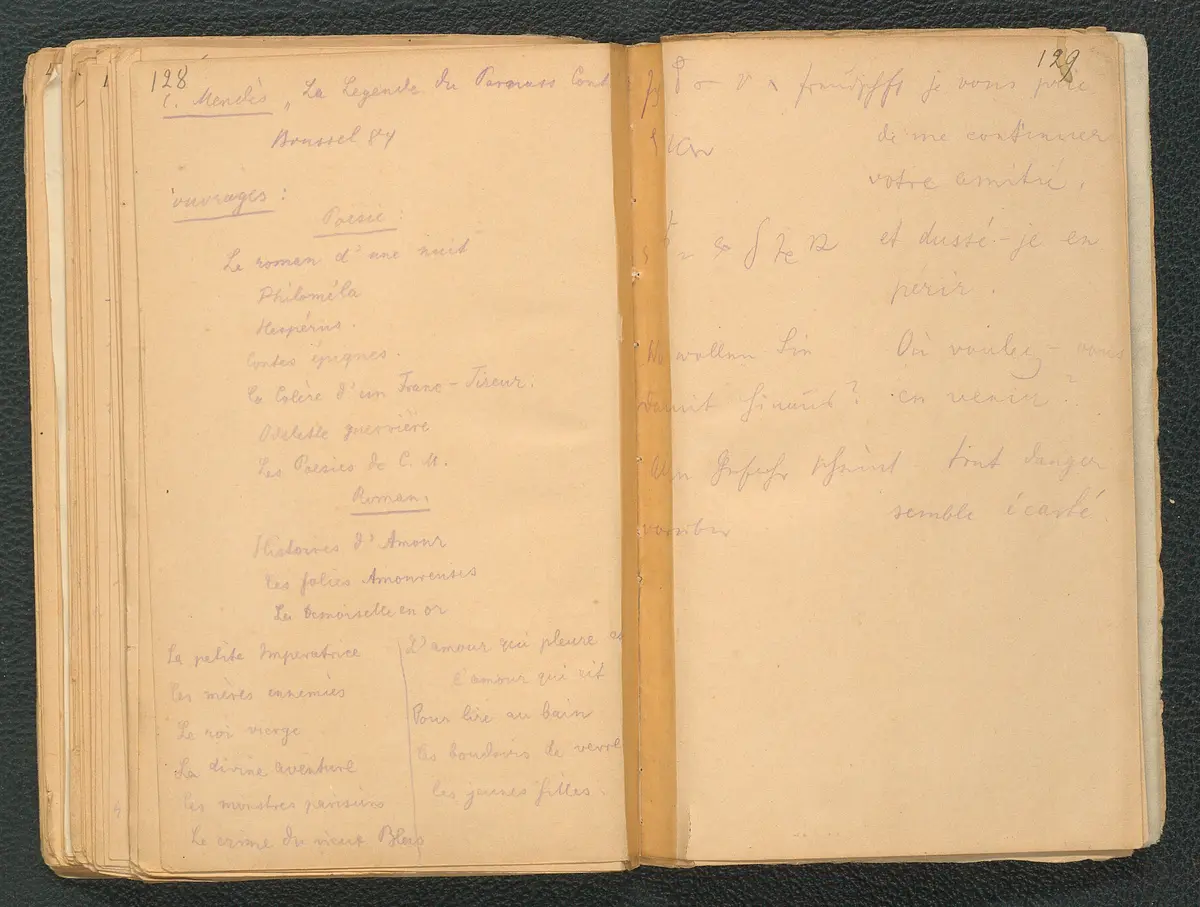 128
C. Mendès „La Legende du Parnass Cont
Brussel 84
ouvrages :
Poësie :
Le roman d'une nuit
Philoméla
Hespérus.
Contes épiques.
La Colère d'un Franc-Tireur.
Odelette guerrière
Les Poësies de C. M.
Roman.
Histoires d'Amour
Les folies Amoureuses
La Demoiselle en or
La petite Imperatrice
Les mères ennemies
Le roi vierge
La divine aventure
Les monstres parisiens
Le crime du vieux Blas
L'amour qui pleure
l'amour qui rit
Pour lire au bain
Les boudoirs de verre
les jeunes filles.
129
je vous prie
de me continuer
votre amitié.
et dussé-je en
périr.
wollen Sie Où voulez-vous
damit hinaus? en venir?
Gefahr scheint tout danger
semble écarté
vorüber